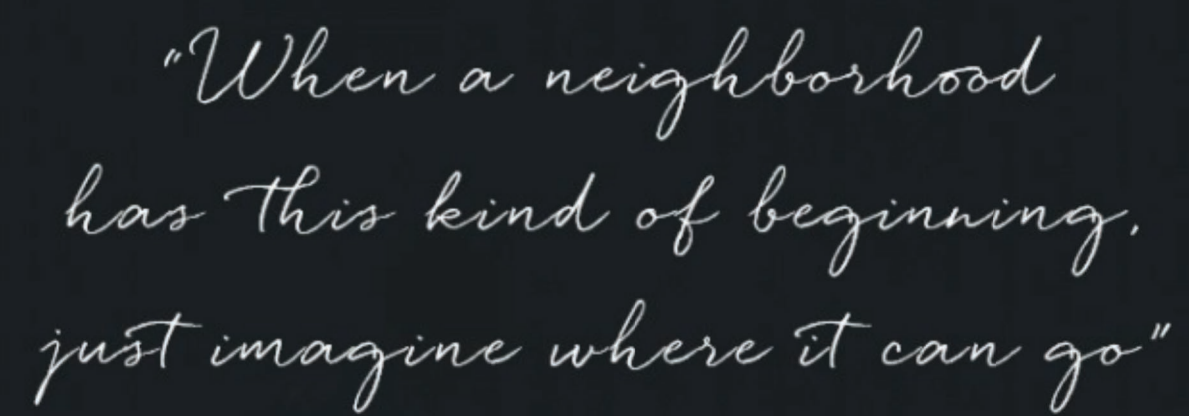 "When a neighborhood
has this kind of beginning,
just imagine where it can go"